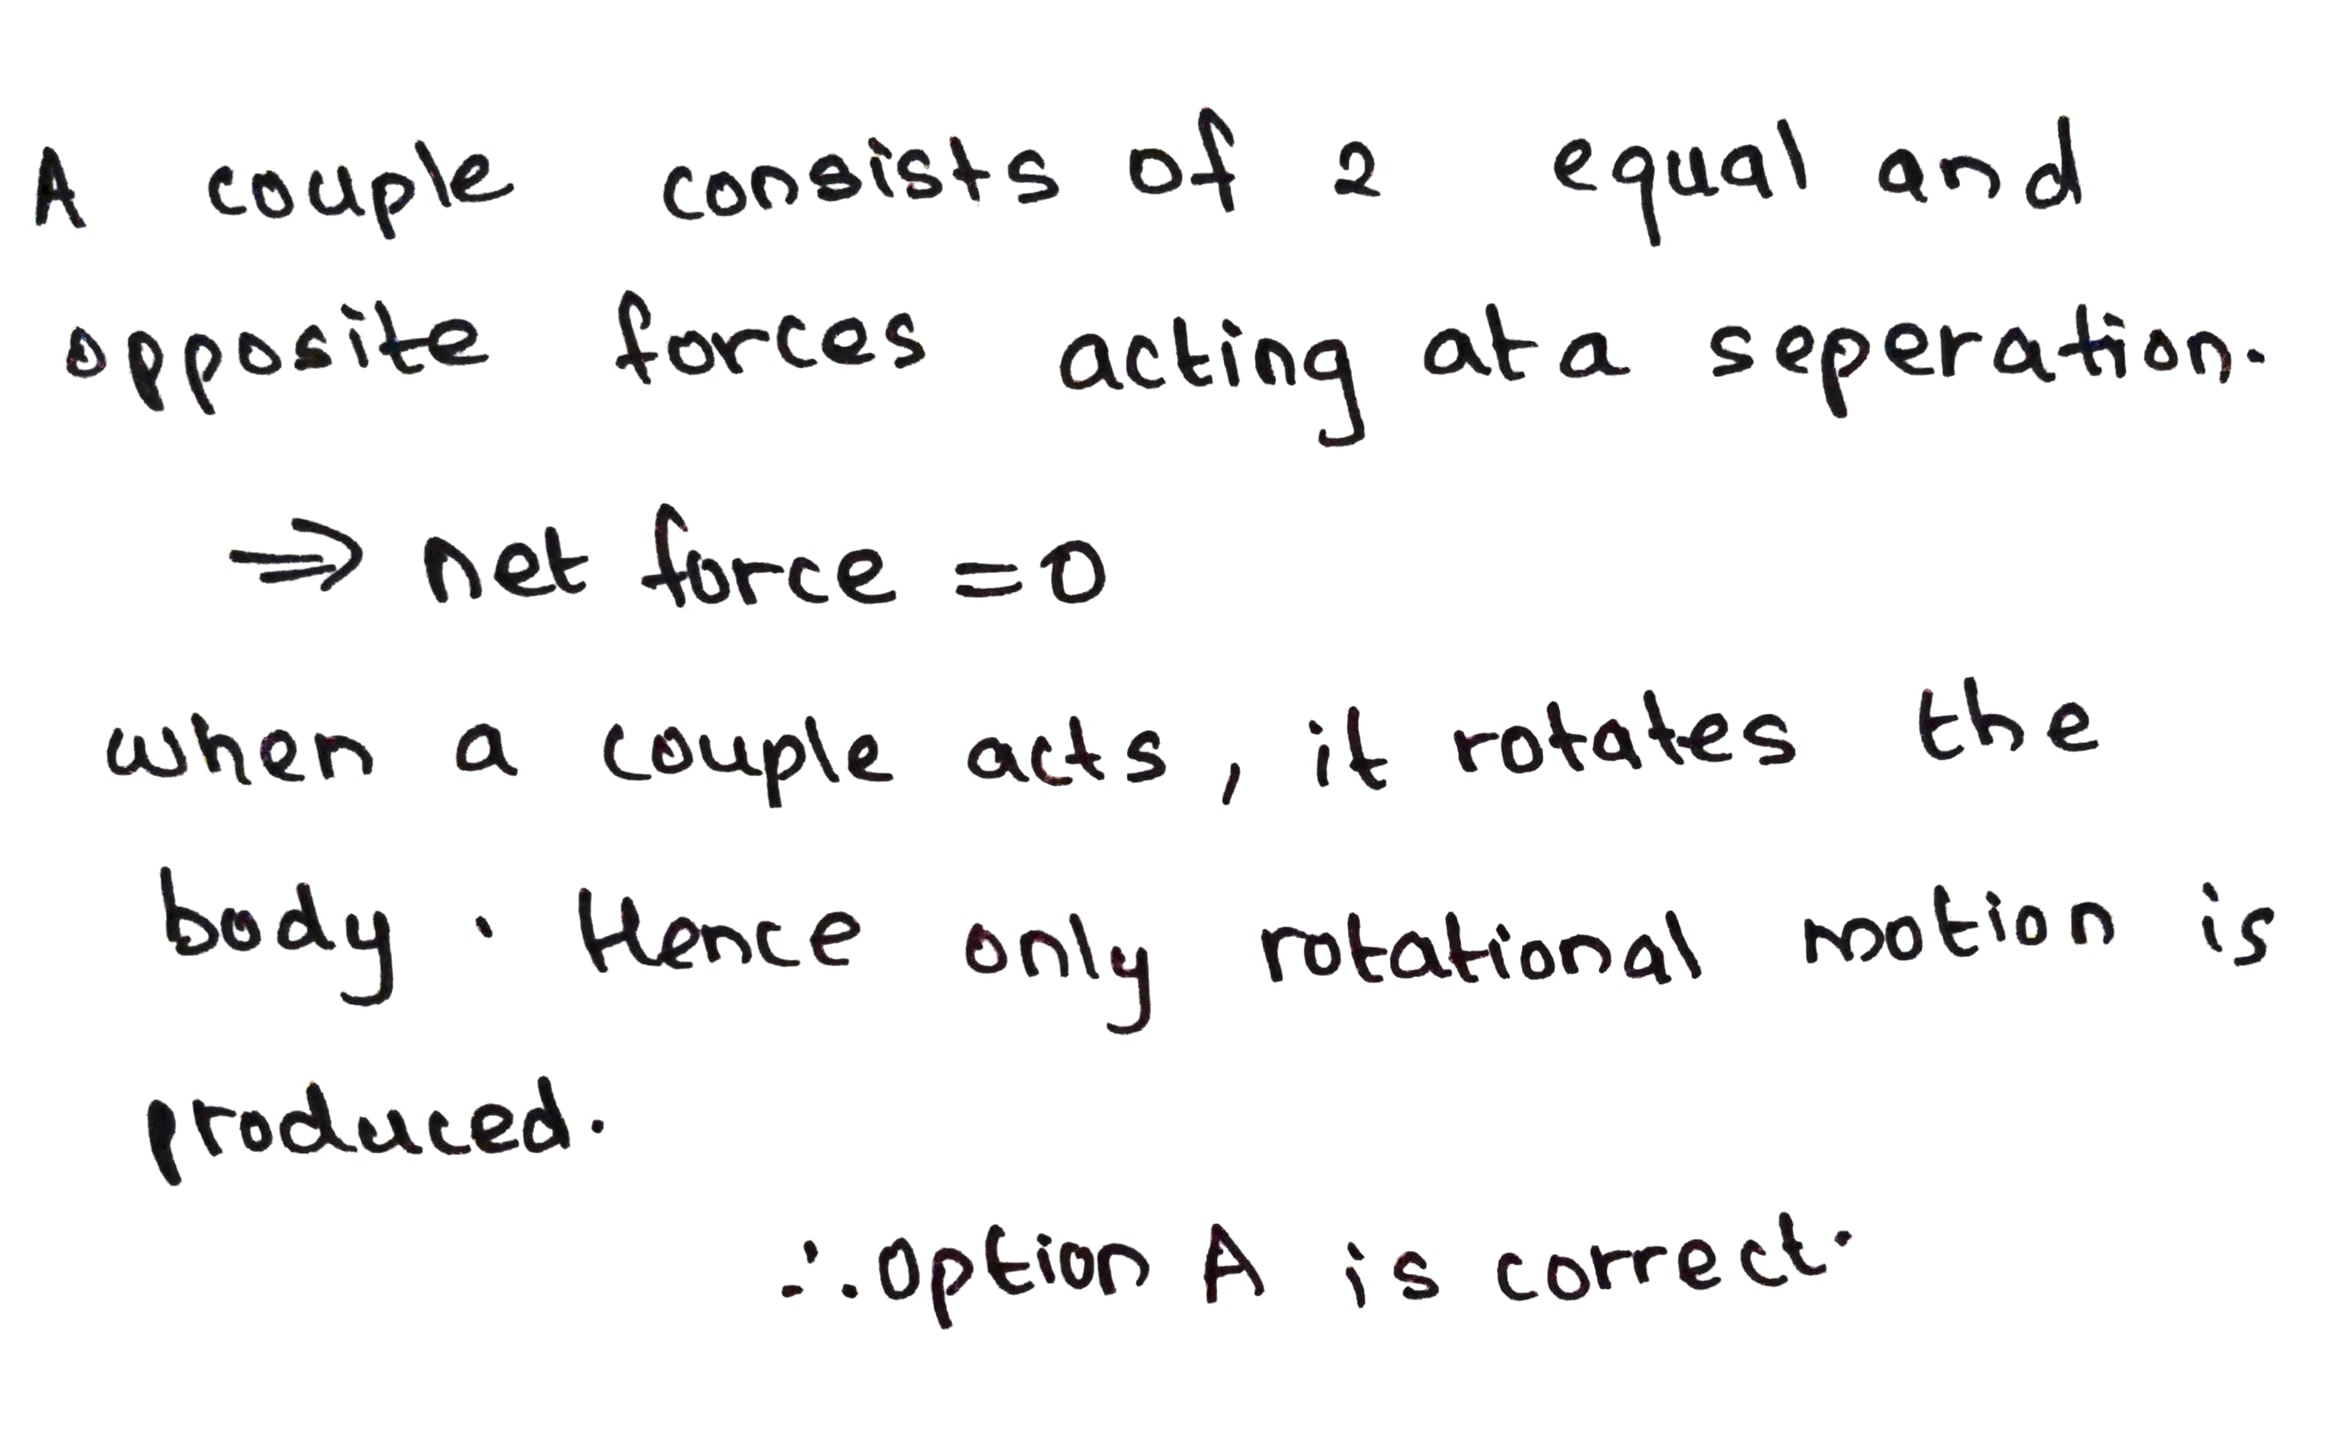 A couple consists of 2 equal and
opposite forces acting at a seperation.
⇒ net force = 0
when a couple acts, it rotates the
body. Hence only rotational motion is
produced.
∴ Option A is correct.